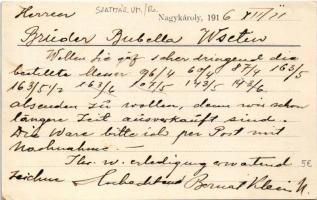 Herren SZATMÁR VM./Ro. Nagykároly, 1916 XII/11
Brieder Bubella Wsetin
Wollen Sie so scher dringend die
bestellte Neuer 96/4 64/4 87/4 163/5
163/5/2 163/6 143/5 143/6
absenden zu wollen, denn wir schon
längre Zeit ausverkauft sind.
Die Ware bitte ich per Post mit
Nachnahme.
Ihr w. erledigung erwartend
zeichne Hochachtend Bernat Klein N.
5€